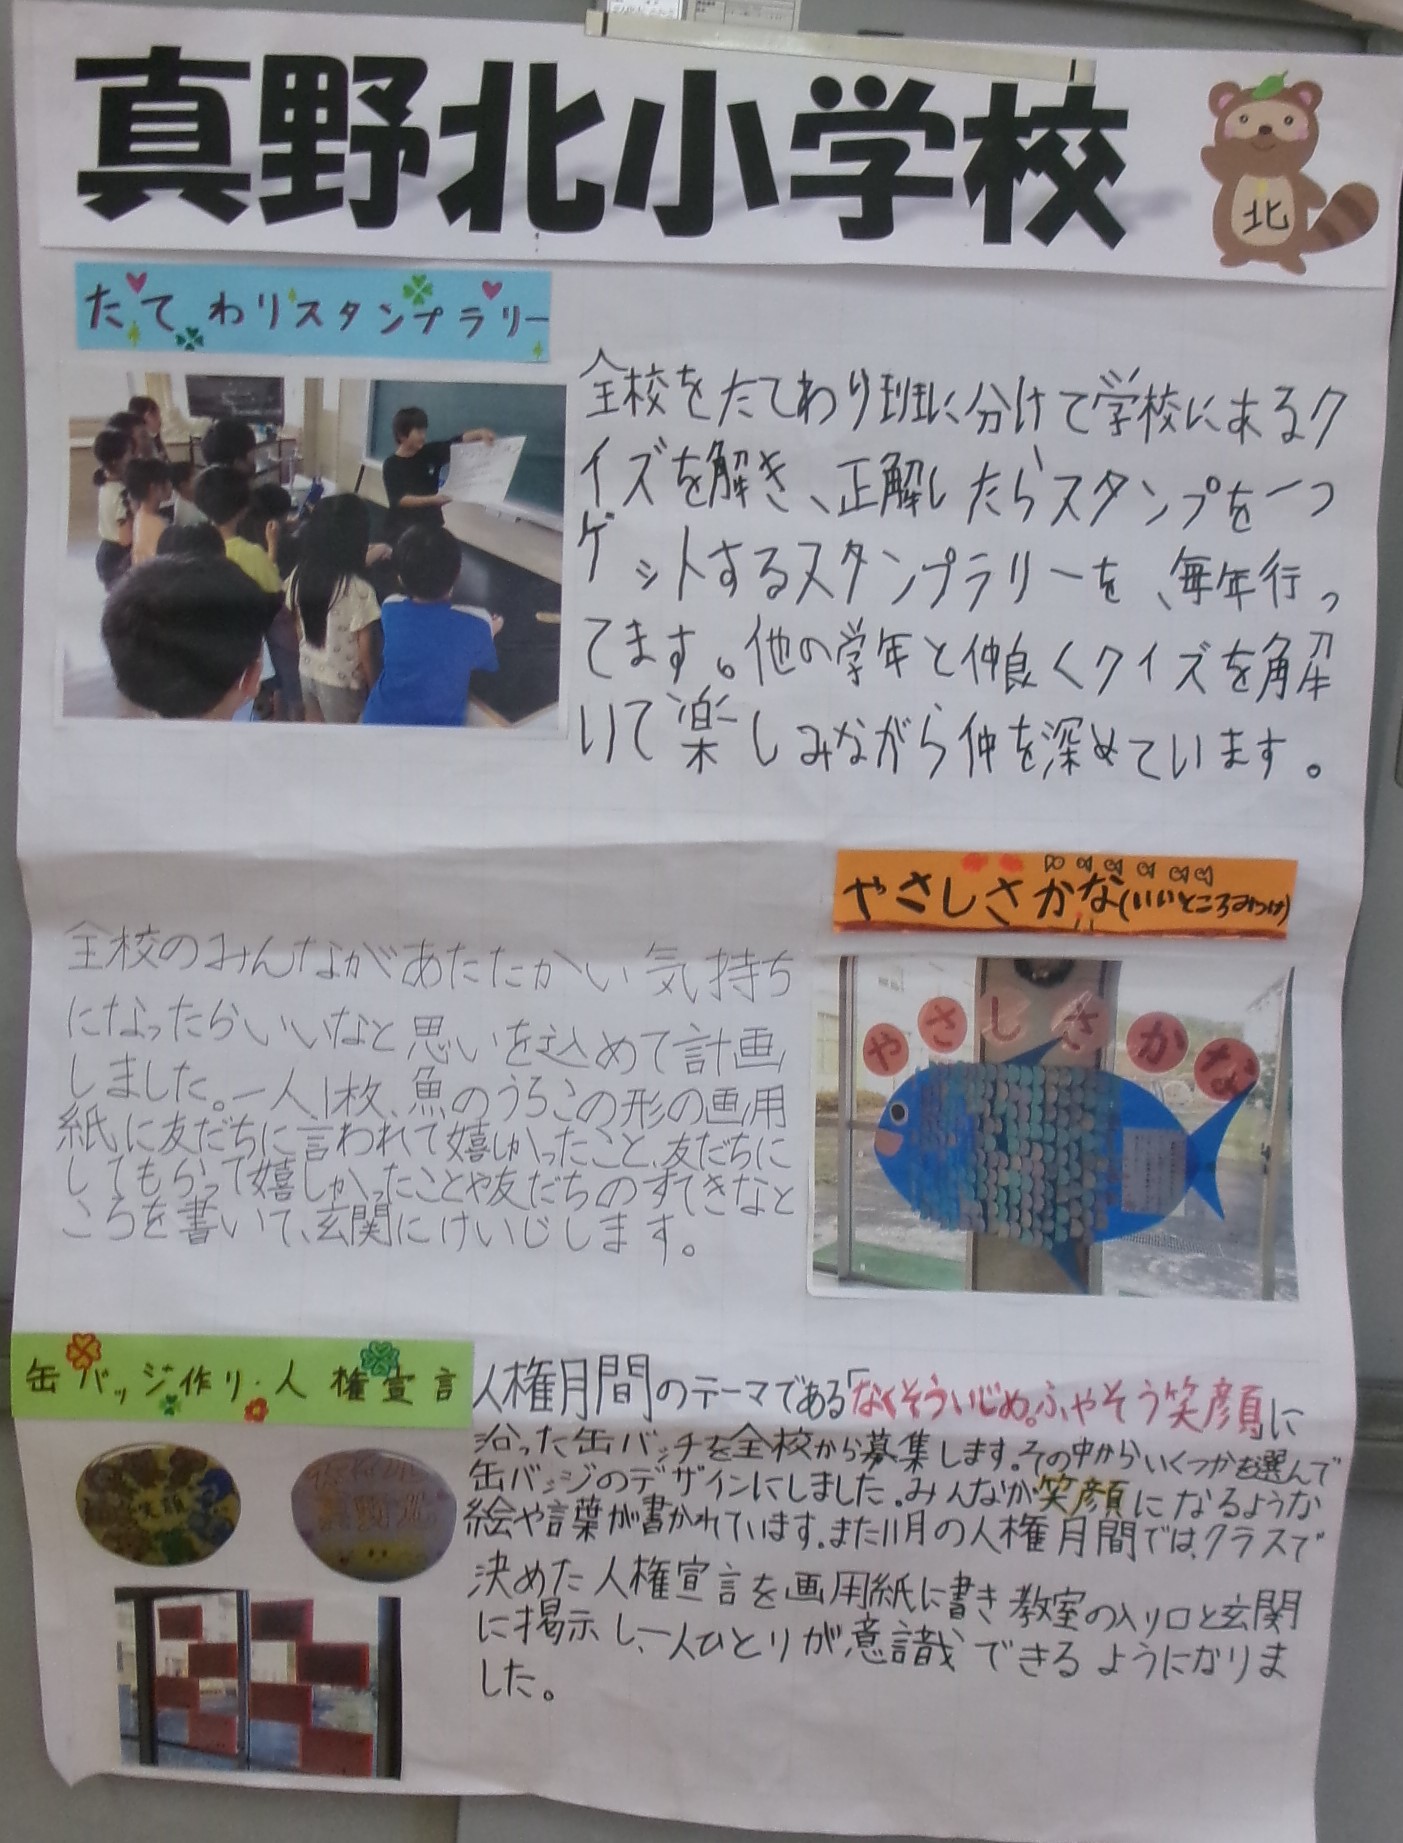 真野北小学校
北
たてわりスタンプラリー
全校をたてわり班に分けて学校にあるク
イズを解き、正解したらスタンプを一つ
ゲットするスタンプラリーを、毎年行っ
てます。他の学年と仲良くクイズを解
いて楽しみながら仲を深めています。
やさしさかな(いいところみつけ)
全校のみんながあたたかい気持ち
になったらいいなと思いを込めて計画
しました。一人1枚、魚のうろこの形の画用
紙に友だちに言われて嬉しかったこと、友だちに
してもらって嬉しかったことや友だちのすてきなと
ころを書いて、玄関にけいじします。
やさしさかな
缶バッジ作り・人権宣言
人権月間のテーマである「なくそういじめ。ふやそう笑顔」に
沿った缶バッチを全校から募集します。その中からいくつかを選んで
缶バッジのデザインにしました。みんなが笑顔になるような
絵や言葉が書かれています。また11月の人権月間では、クラスで
決めた人権宣言を画用紙に書き教室の入り口と玄関
に掲示し、一人ひとりが意識できるようになりま
した。
笑顔